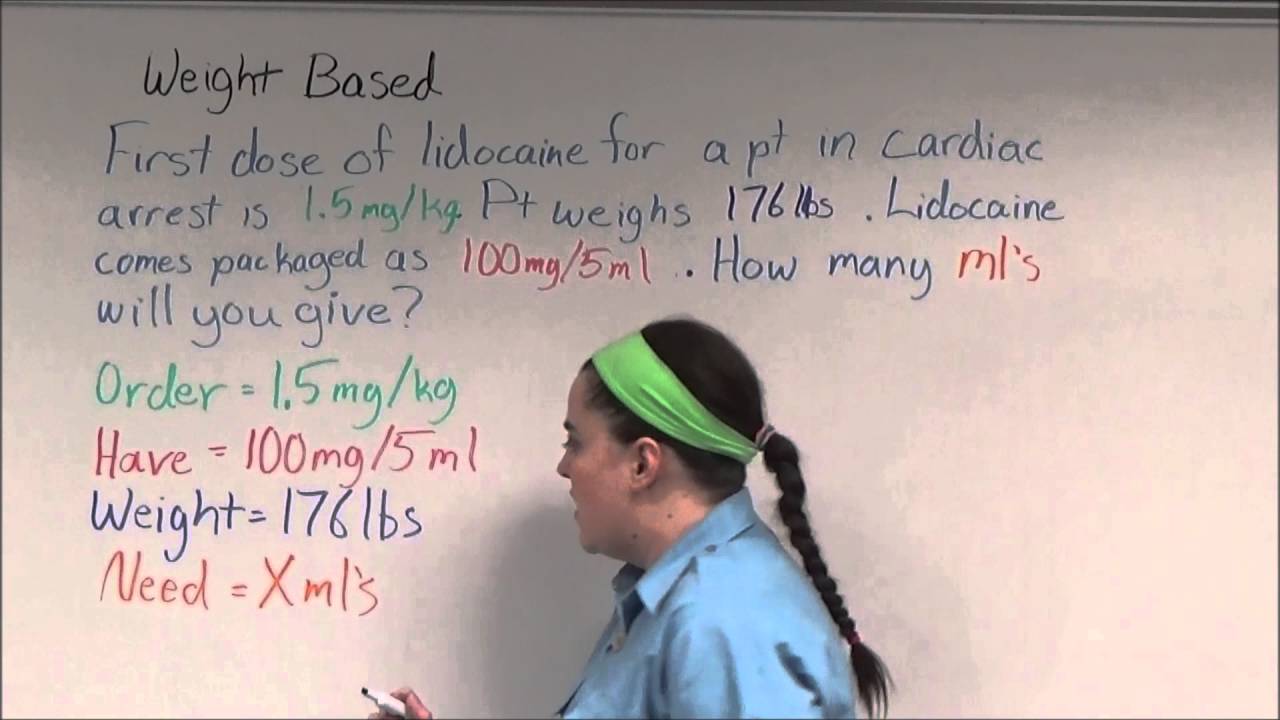 Weight Based
First dose of lidocaine for a pt in cardiac
arrest is 1.5mg/kg. Pt weighs 176 lbs. Lidocaine
comes packaged as 100mg/5ml. How many ml's
will you give?
Order = 1.5mg/kg
Have = 100mg/5ml
Weight = 176 lbs
Need = X ml's